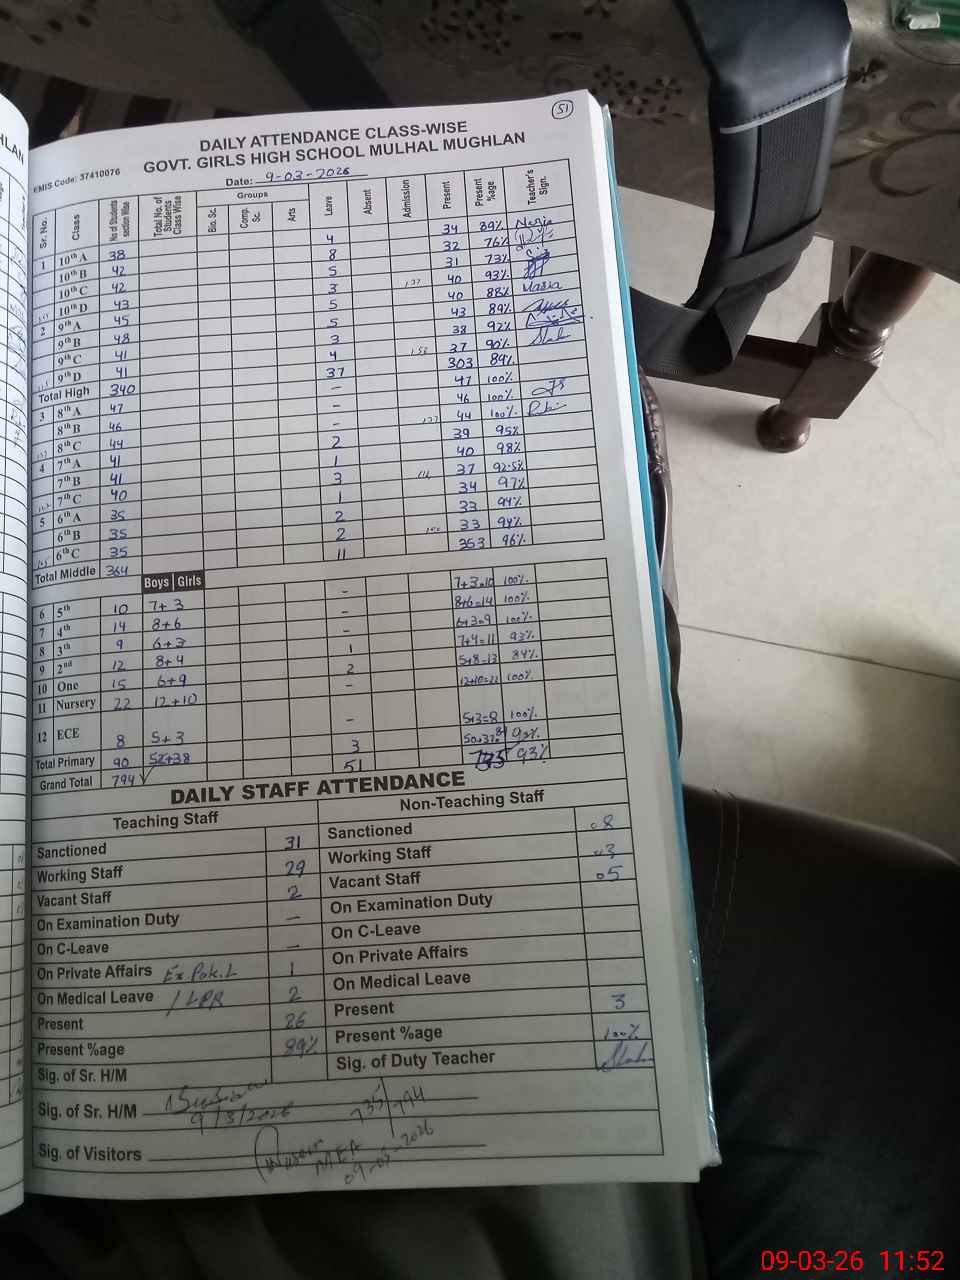 51
DAILY ATTENDANCE CLASS-WISE
GOVT. GIRLS HIGH SCHOOL MULHAL MUGHLAN
EMIS Code: 37410076
Date: 9-03-2026
Sr. No. Class No of Students section Wise Total No. of Students Class Wise Groups Bio. Sc. Comp. Sc. Arts Leave Absent Admission Present Present %age Teacher's Sign.
1 10th A 38 4 34 89%
10th B 42 8 32 76%
10th C 42 5 31 73%
10th D 43 3 137 40 93%
2 9th A 45 5 40 88%
9th B 48 5 43 89%
9th C 41 3 38 92%
9th D 41 4 37 90%
Total High 340 37 303 89%
3 8th A 47 - 47 100%
8th B 46 - 46 100%
8th C 44 - 137 44 100%
4 7th A 41 2 39 95%
7th B 41 1 40 98%
7th C 40 3 37 92.5%
5 6th A 35 1 34 97%
6th B 35 2 33 94%
6th C 35 2 33 94%
Total Middle 364 11 353 96%
Boys Girls
6 5th 10 7+3 - 7+3=10 100%
7 4th 14 8+6 - 8+6=14 100%
8 3th 9 6+3 - 6+3=9 100%
9 2nd 12 8+4 1 7+4=11 93%
10 One 15 6+9 2 5+8=13 84%
11 Nursery 22 12+10 - 12+10=22 100%
12 ECE 8 5+3 - 5+3=8 100%
Total Primary 90 52+38 3 50+37=87 93%
Grand Total 794 51 93%
DAILY STAFF ATTENDANCE
Teaching Staff Non-Teaching Staff
Sanctioned 31 Sanctioned 08
Working Staff 29 Working Staff 03
Vacant Staff 2 Vacant Staff 05
On Examination Duty - On Examination Duty
On C-Leave - On C-Leave
On Private Affairs Ex.Pak.L 1 On Private Affairs
On Medical Leave / LPR 2 On Medical Leave
Present 26 Present 3
Present %age 89% Present %age 100%
Sig. of Sr. H/M Sig. of Duty Teacher
Sig. of Sr. H/M 9/3/2026 735/794
Sig. of Visitors MEA
09-03-2026
09-03-26 11:52